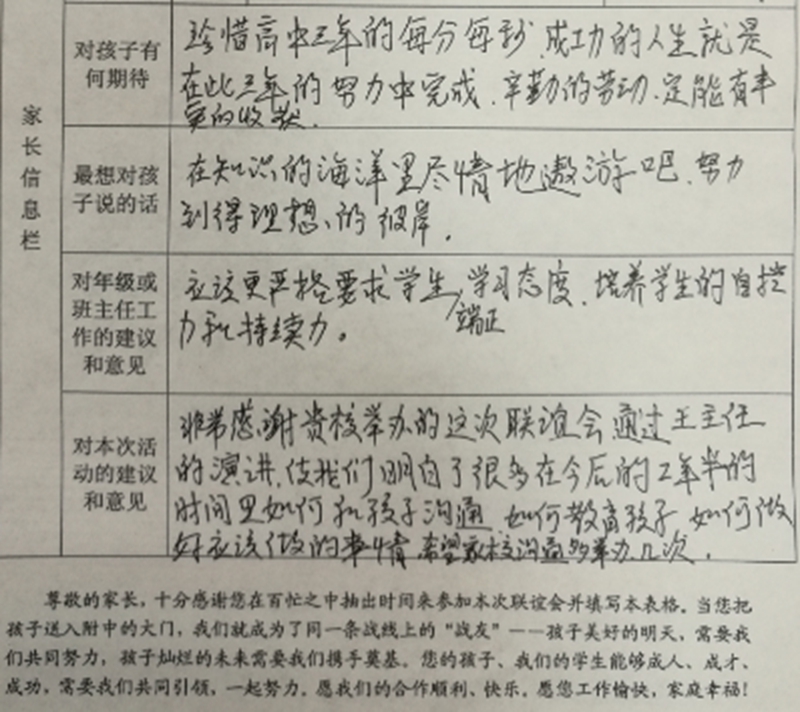 家长信息栏
对孩子有
何期待
珍惜高中三年的每分每秒、成功的人生就是
在此三年的努力中完成、辛勤的劳动、定能有丰
实的收获.
最想对孩
子说的话
在知识的海洋里尽情地遨游吧、努力
到得理想、的彼岸.
对年级或
班主任工
作的建议
和意见
应该更严格要求学生,学习态度、培养学生的自控
端正
力和持续力。
对本次活
动的建议
和意见
非常感谢贵校举办的这次联谊会通过王主任
的演讲,使我们明白了很多在今后的2年半的
时间里如何和孩子沟通、如何教育孩子、如何做
好应该做的事情、希望家校沟通多举办几次.
尊敬的家长,十分感谢您在百忙之中抽出时间来参加本次联谊会并填写本表格。当您把
孩子送入附中的大门,我们就成为了同一条战线上的“战友”——孩子美好的明天,需要我
们共同努力,孩子灿烂的未来需要我们携手奠基。您的孩子、我们的学生能够成人、成才、
成功,需要我们共同引领,一起努力。愿我们的合作顺利、快乐。愿您工作愉快,家庭幸福!